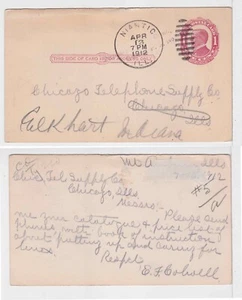 NIANTIC
APR
13
7 PM
1912
ILL.
THIS SIDE OF CARD IS FOR ADDRESS
Chicago Telephone Supply Co
Chicago
Ills
Elkhart Indiana
Ills
Chic Tel Supply Co
Chicago Ills
Messers: - Please send
me your catalogue & price list of
Phones with book of instruction
about putting up and caring for
Respct